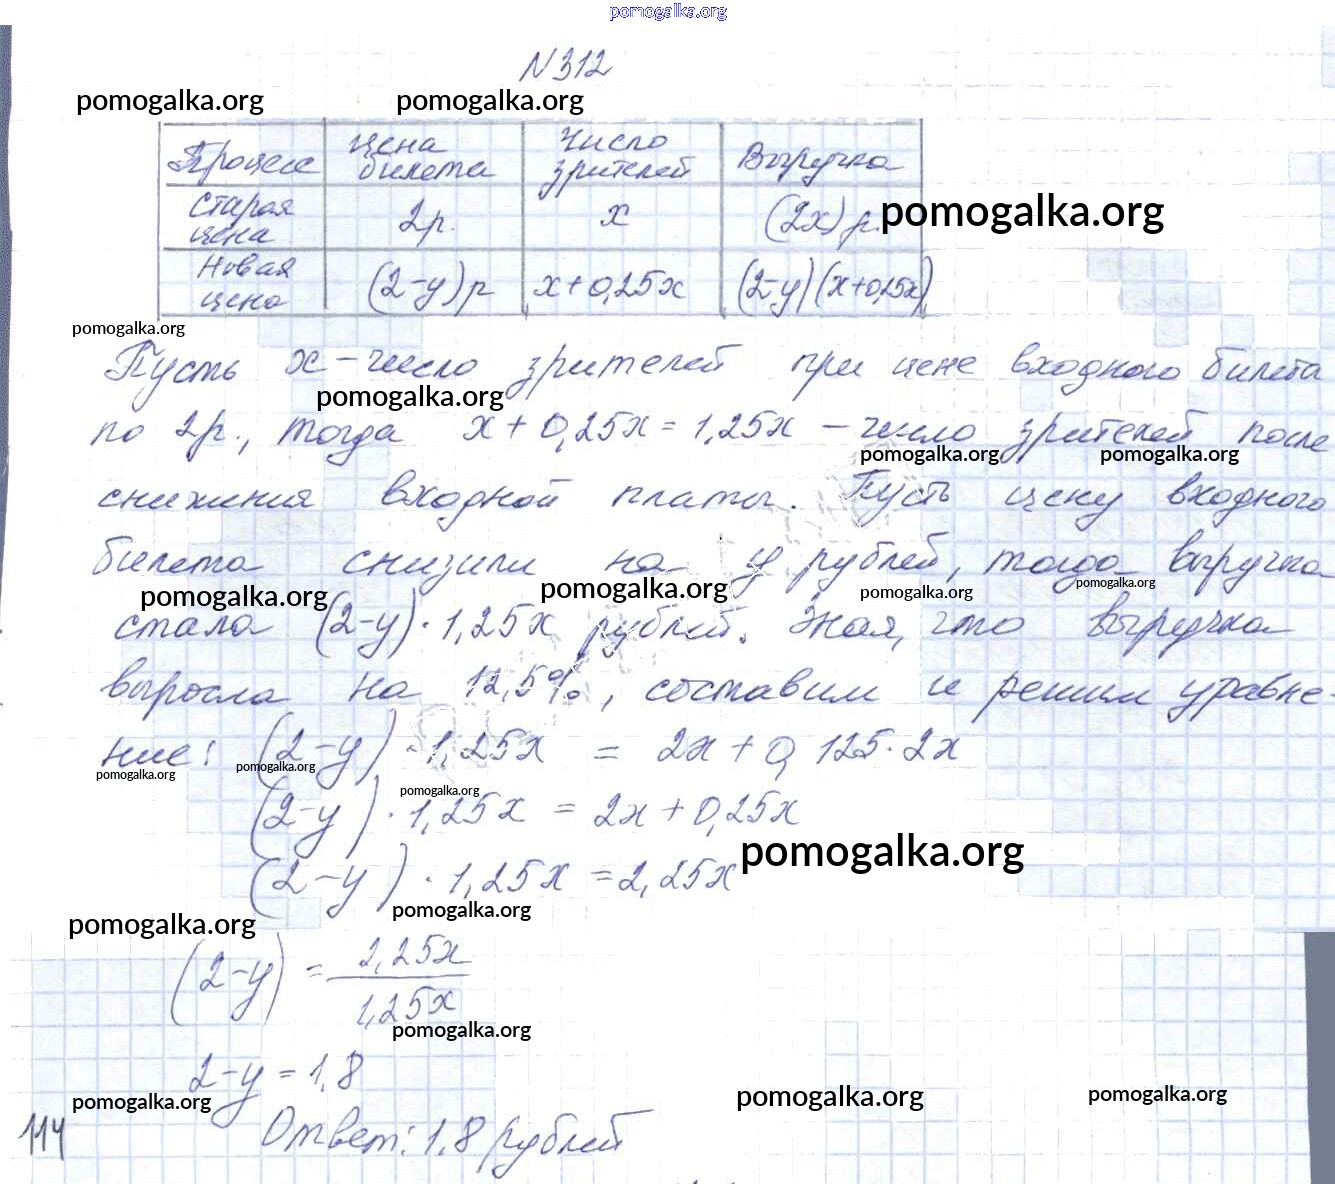 pomogalka.org
N 312
pomogalka.org pomogalka.org
Процесс Цена билета Число зрителей Выручка
старая цена 2р. x (2x) р. pomogalka.org
Новая цена (2-y) р x+0,25x (2-y)(x+0,25x)
pomogalka.org
Пусть x - число зрителей при цене входного билета
pomogalka.org
по 2р., тогда x + 0,25x = 1,25x - число зрителей после
pomogalka.org pomogalka.org
снижения входной платы. Пусть цену входного
билета снизили на y рублей, тогда выручка
pomogalka.org pomogalka.org pomogalka.org pomogalka.org
стала (2-y)·1,25x рублей. Зная, что выручка
выросла на 12,5%, составим и решим уравне-
ние: (2-y)·1,25x = 2x + 0,125·2x
pomogalka.org pomogalka.org
pomogalka.org
(2-y)·1,25x = 2x + 0,25x
pomogalka.org
(2-y)·1,25x = 2,25x
pomogalka.org
pomogalka.org
(2-y) = 2,25x
1,25x
pomogalka.org
2-y = 1,8
pomogalka.org pomogalka.org pomogalka.org
114 Ответ: 1,8 рублей